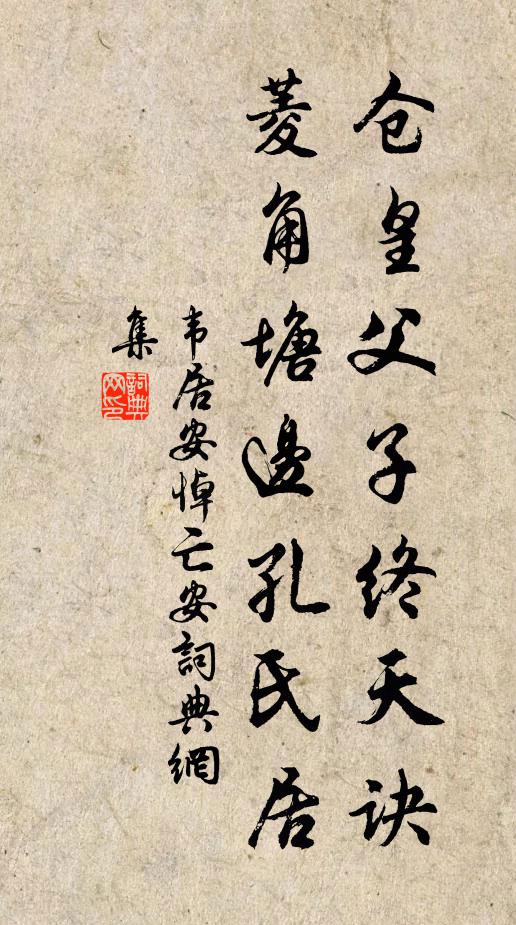 仓皇父子终天诀
菱角塘邊孔氏居
韦居安悼亡安詞典網
集
詞典網印